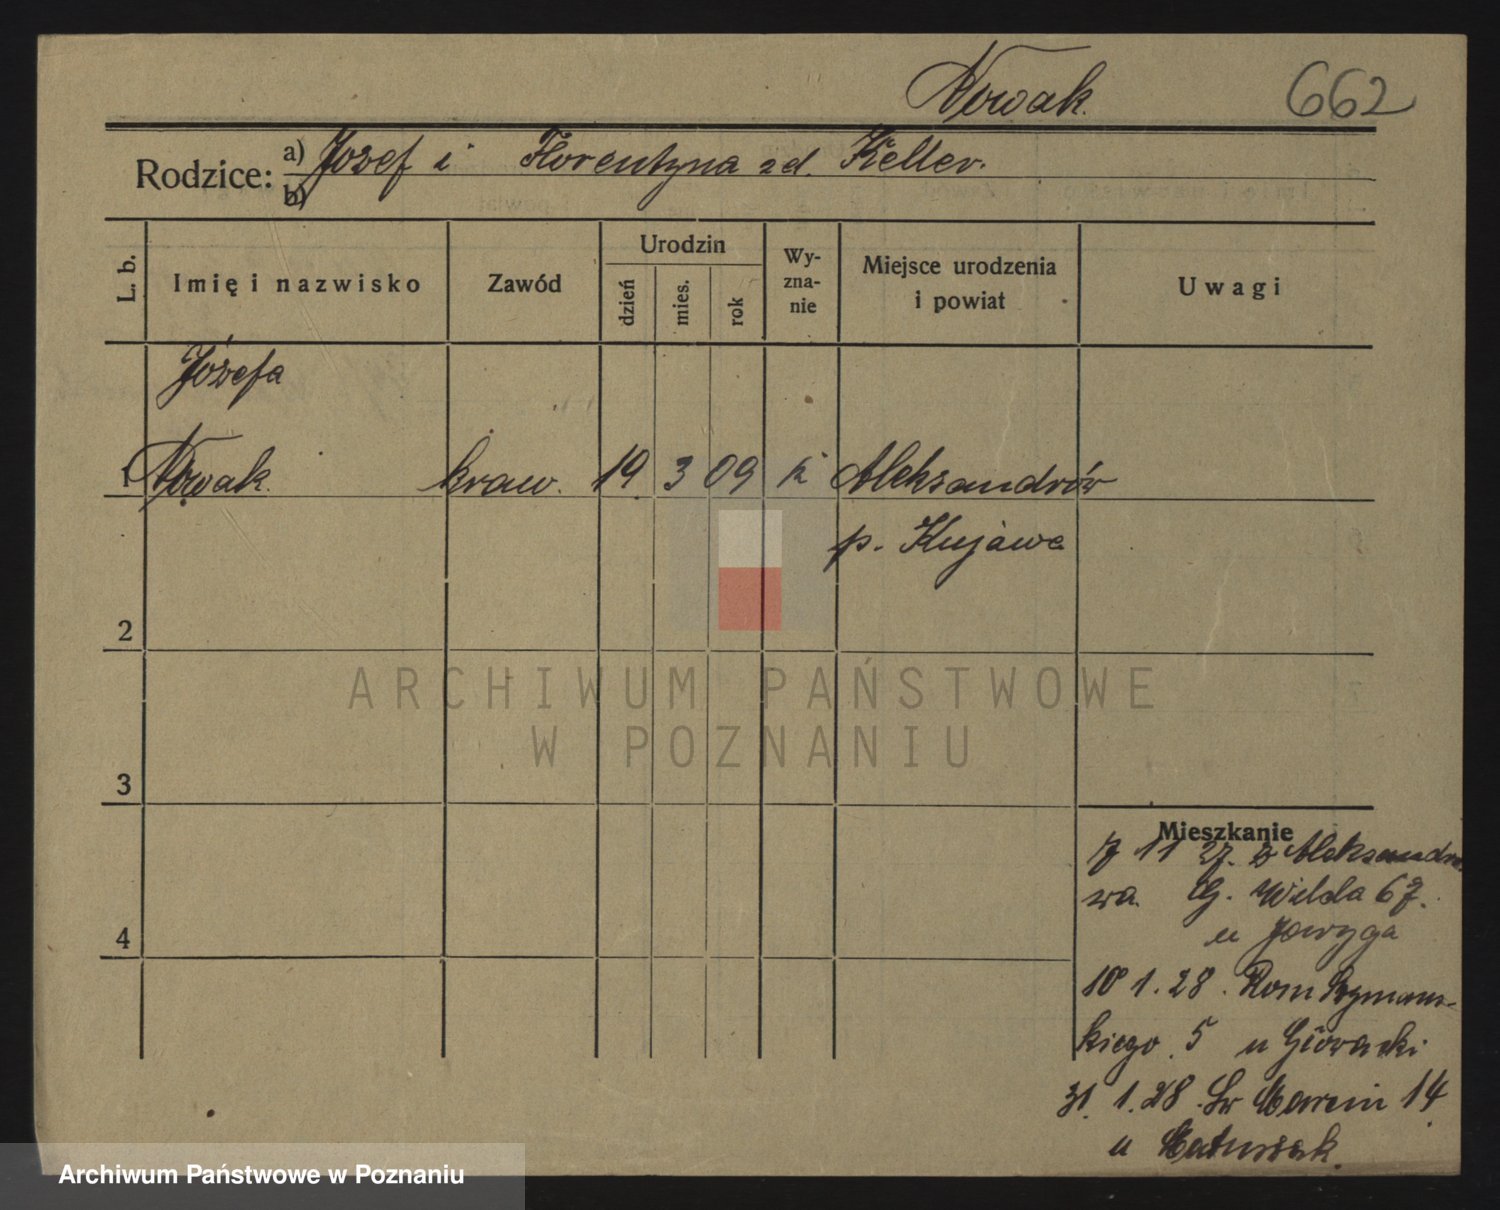 Nowak. 662
Rodzice: a) Józef i Florentyna zd. Keller.
b)
L. b.
Imię i nazwisko
Zawód
Urodzin
dzień
mies.
rok
Wy-
zna-
nie
Miejsce urodzenia
i powiat
Uwagi
Józefa
1 Nowak. kraw. 19. 3 09 k Aleksandrów
p. Kujawa
2
3
4
Mieszkanie
7 11 27. z Aleksandro
wa. G. Wilda 67.
u
10 1. 28. Rom Szymańs-
kiego. 5 u
31. 1. 28. Św Marcin 14.
u Matuszak.
ARCHIWUM PAŃSTWOWE
W POZNANIU
Archiwum Państwowe w Poznaniu